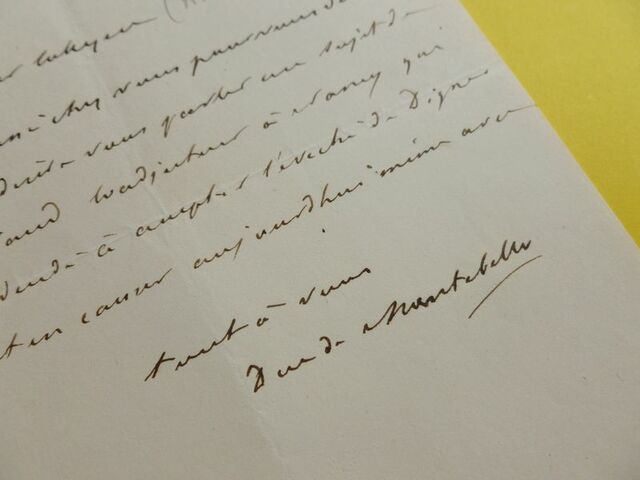 chez vous pour vous de
désire vous parler au sujet de
coadjuteur à Nancy qui
à accepter l'évêché de Digne
en causer aujourd'hui même avec
tout à vous
Duc de Montebello